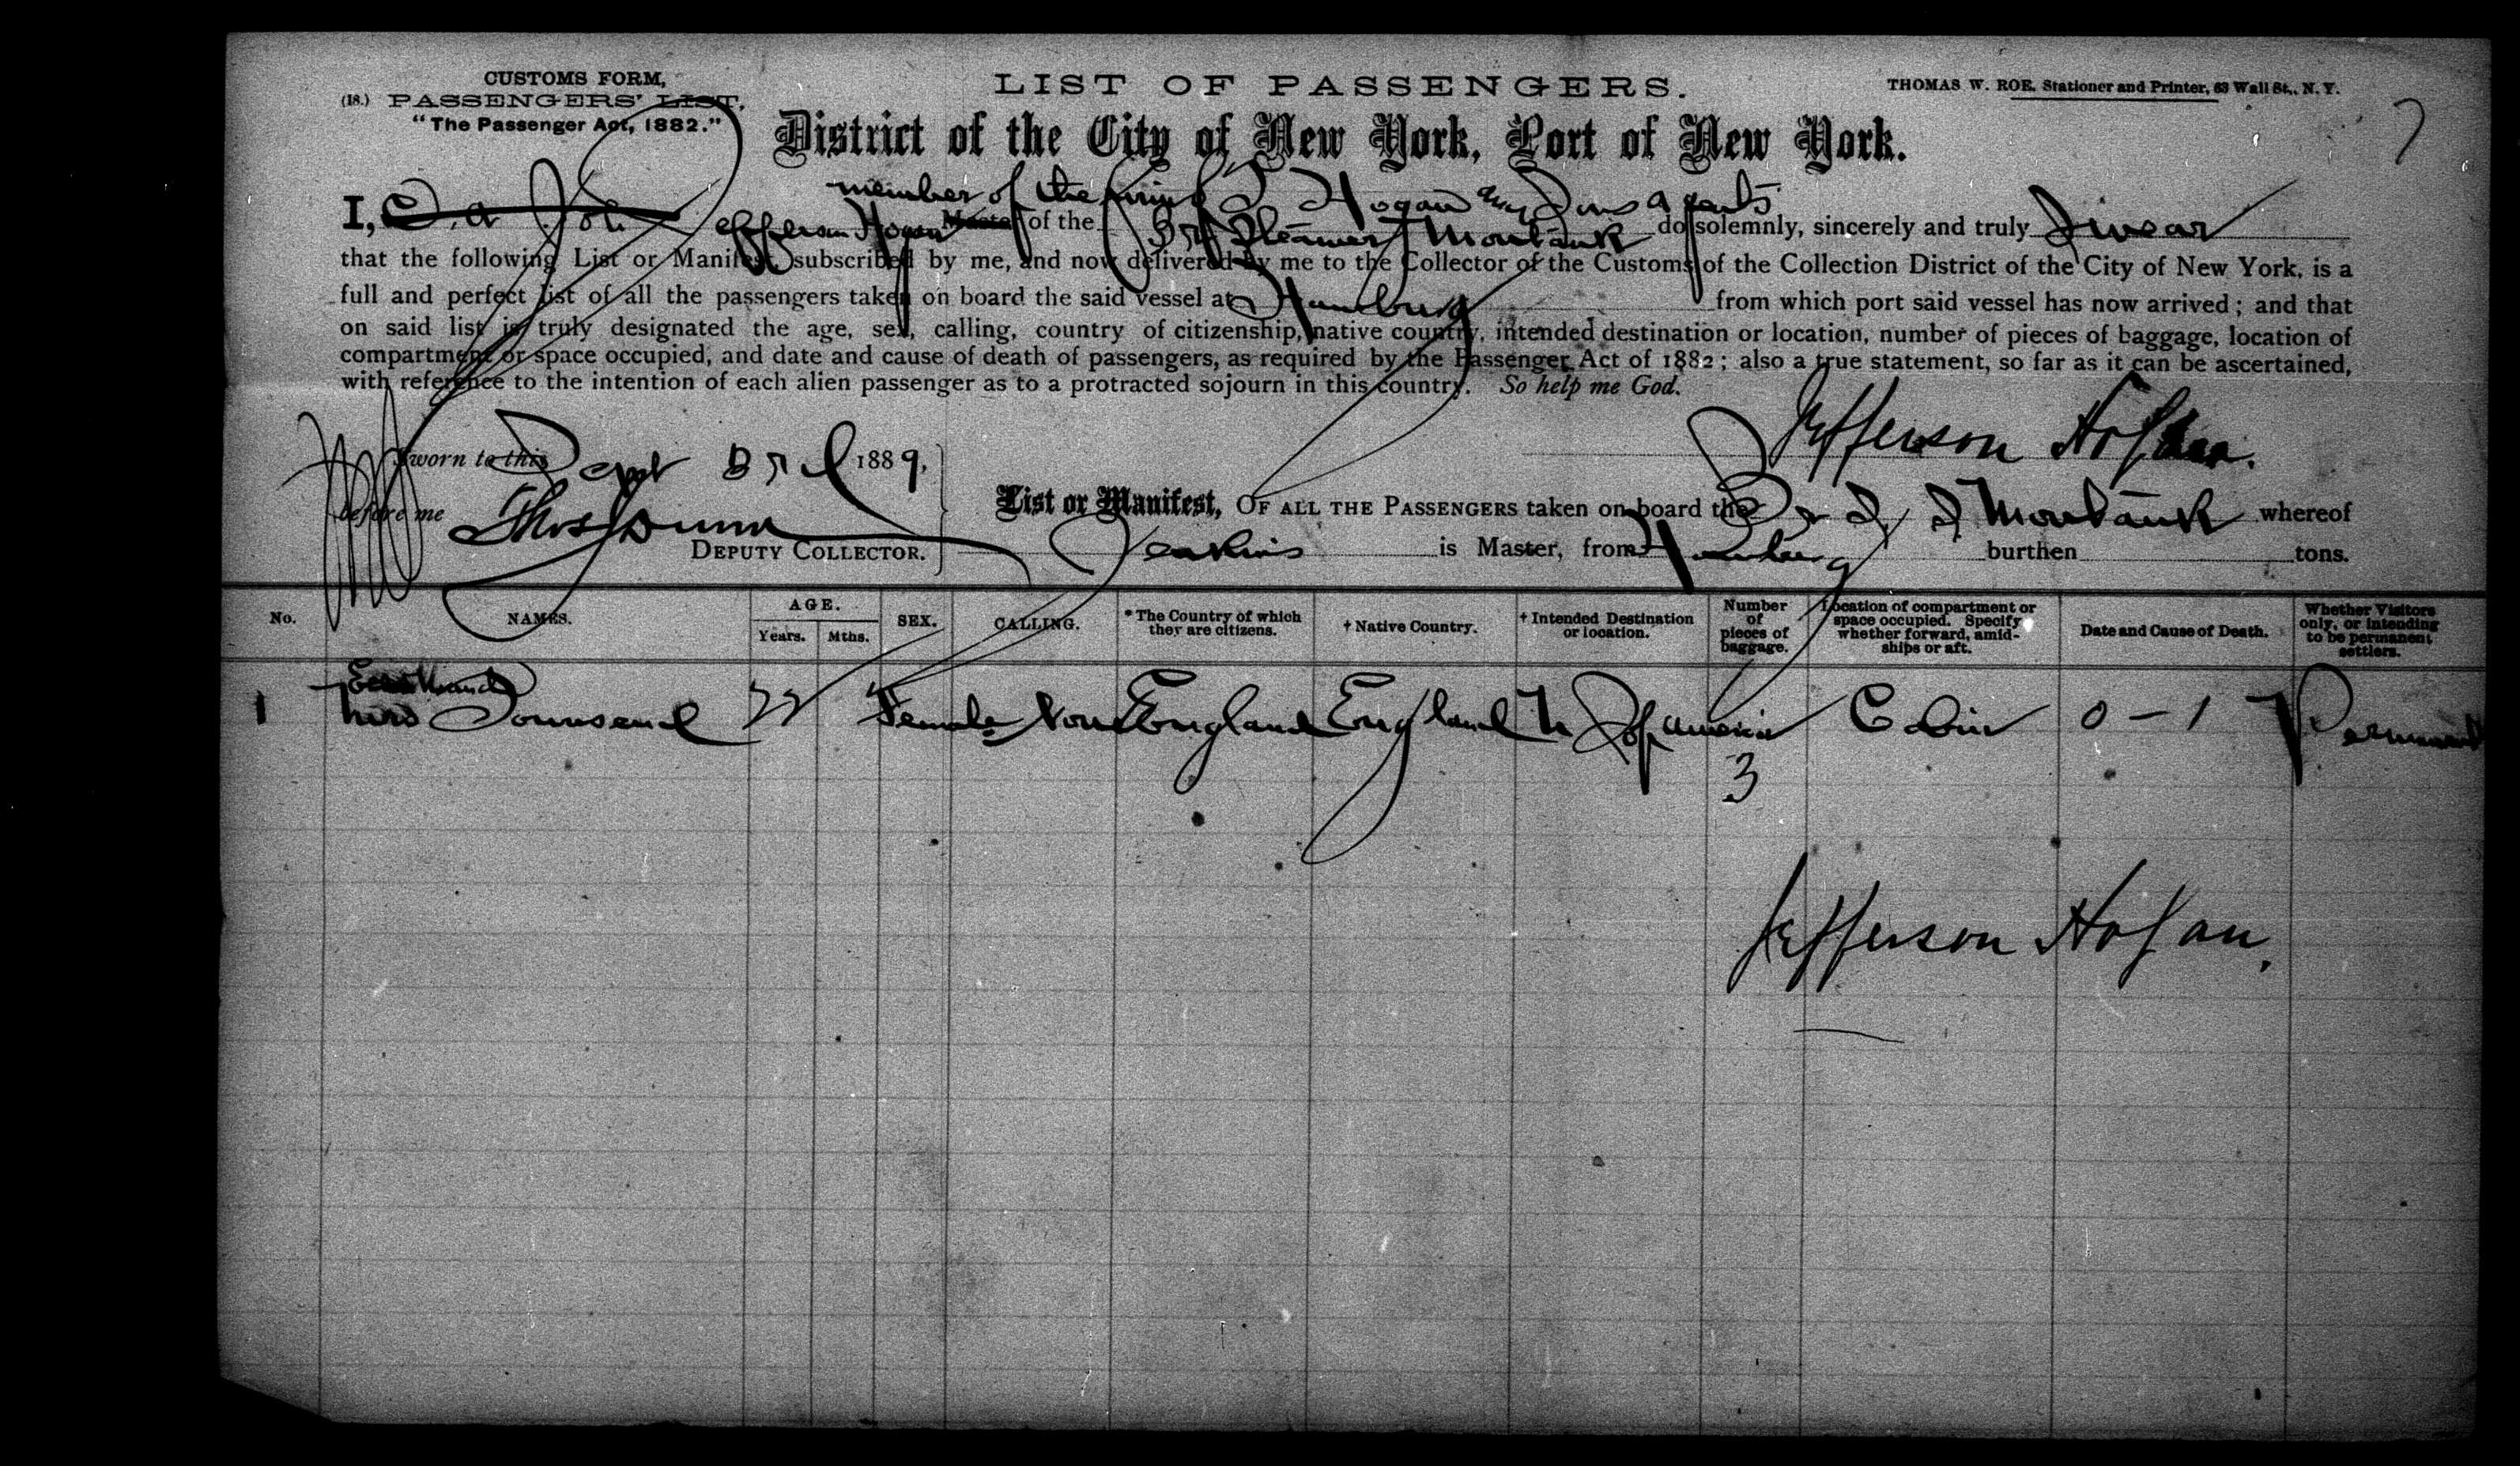 CUSTOMS FORM,
(18.) PASSENGERS' LIST,
"The Passenger Act, 1882."
LIST OF PASSENGERS.
THOMAS W. ROE, Stationer and Printer, 63 Wall St., N. Y.
District of the City of New York, Port of New York.
member of the firm Hogan and Sons agents
I, Jefferson Hogan Master of the Br Steamer do solemnly, sincerely and truly swear
that the following List or Manifest, subscribed by me, and now delivered by me to the Collector of the Customs of the Collection District of the City of New York, is a
full and perfect list of all the passengers taken on board the said vessel at Hamburg from which port said vessel has now arrived; and that
on said list is truly designated the age, sex, calling, country of citizenship, native country, intended destination or location, number of pieces of baggage, location of
compartment or space occupied, and date and cause of death of passengers, as required by the Passenger Act of 1882; also a true statement, so far as it can be ascertained,
with reference to the intention of each alien passenger as to a protracted sojourn in this country. So help me God.
Jefferson Hogan.
Sworn to this Sept 3rd 1889,
before me Thos Dunn
DEPUTY COLLECTOR.
List or Manifest, OF ALL THE PASSENGERS taken on board the Br S S whereof
Jenkins is Master, from Hamburg burthen tons.
No. NAMES. AGE. Years. Mths. SEX. CALLING. * The Country of which they are citizens. † Native Country. † Intended Destination or location. Number of pieces of baggage. Location of compartment or space occupied. Specify whether forward, amidships or aft. Date and Cause of Death. Whether Visitors only, or intending to be permanent settlers.
1 Townsend 22 Female None England England U S of America 3 Cabin 0 - 1 Permanent
Jefferson Hogan.